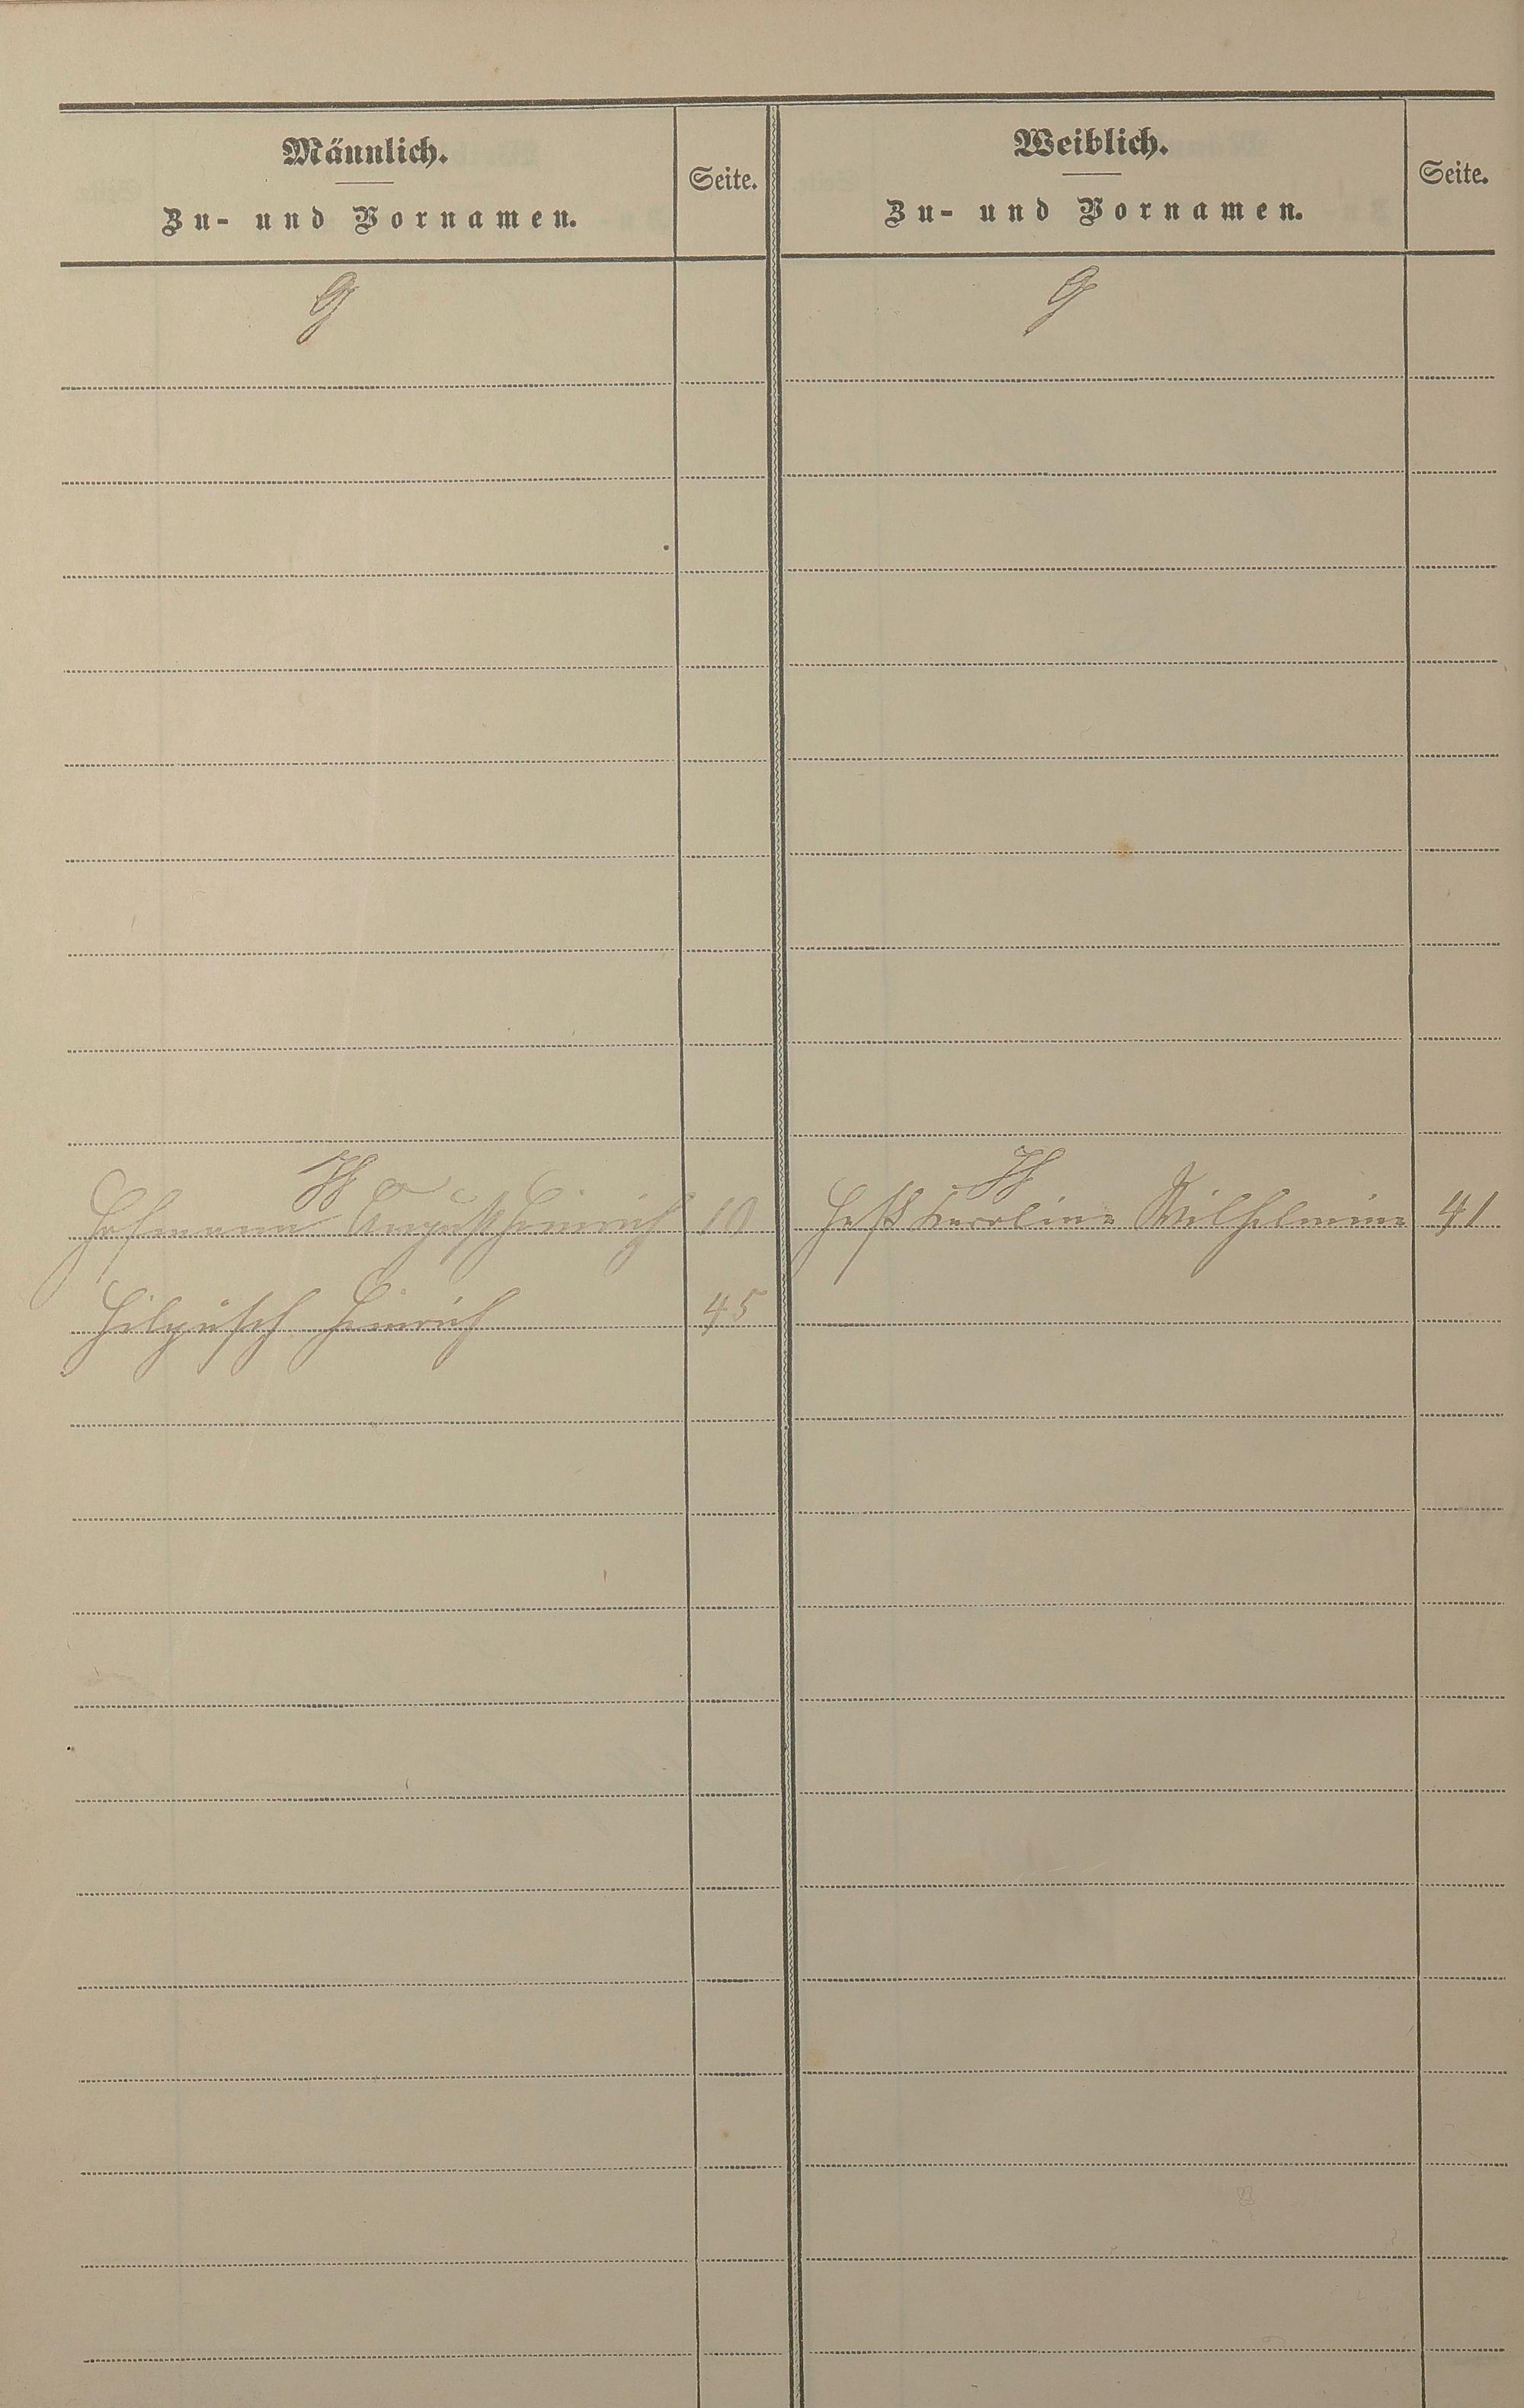 Männlich.
Zu- und Vornamen.
Seite.
Weiblich.
Zu- und Vornamen.
Seite.
G
G
H
H
Hofmann August Heinrich 10
Heß Karoline Wilhelmine 41
Hilpüsch Heinrich 45